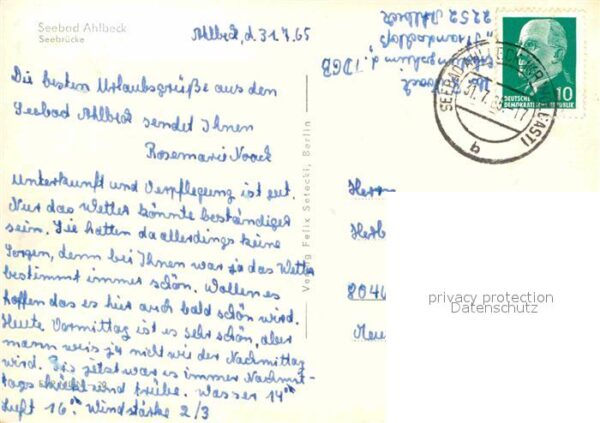 Seebad Ahlbeck
Seebrücke
Ahlbeck, d. 31.7.65
Die besten Urlaubsgrüße aus dem
Seebad Ahlbeck sendet Ihnen
Rosemarie Noack
Unterkunft und Verpflegung ist gut.
Nur das Wetter könnte beständiger
sein. Sie hatten da allerdings keine
Sorgen, denn bei Ihnen war ja das Wetter
bestimmt immer schön. Wollen es
hoffen das es hier auch bald schön wird.
Heute Vormittag ist es sehr schön, aber
mann weis ja nicht wie der Nachmittag
wird. Bis jetzt war es immer Nachmit-
tags kühl und trübe. Wasser 14°
Luft 16°. Windstärke 2/3
Verlag Felix Setecki, Berlin
2252 Ahlbeck
FDGB
Noack
DEUTSCHE
DEMOKRATISCHE REPUBLIK
10
SEEBAD
31.7.65-17
b
Herrn
Herb
8046
privacy protection
Datenschutz